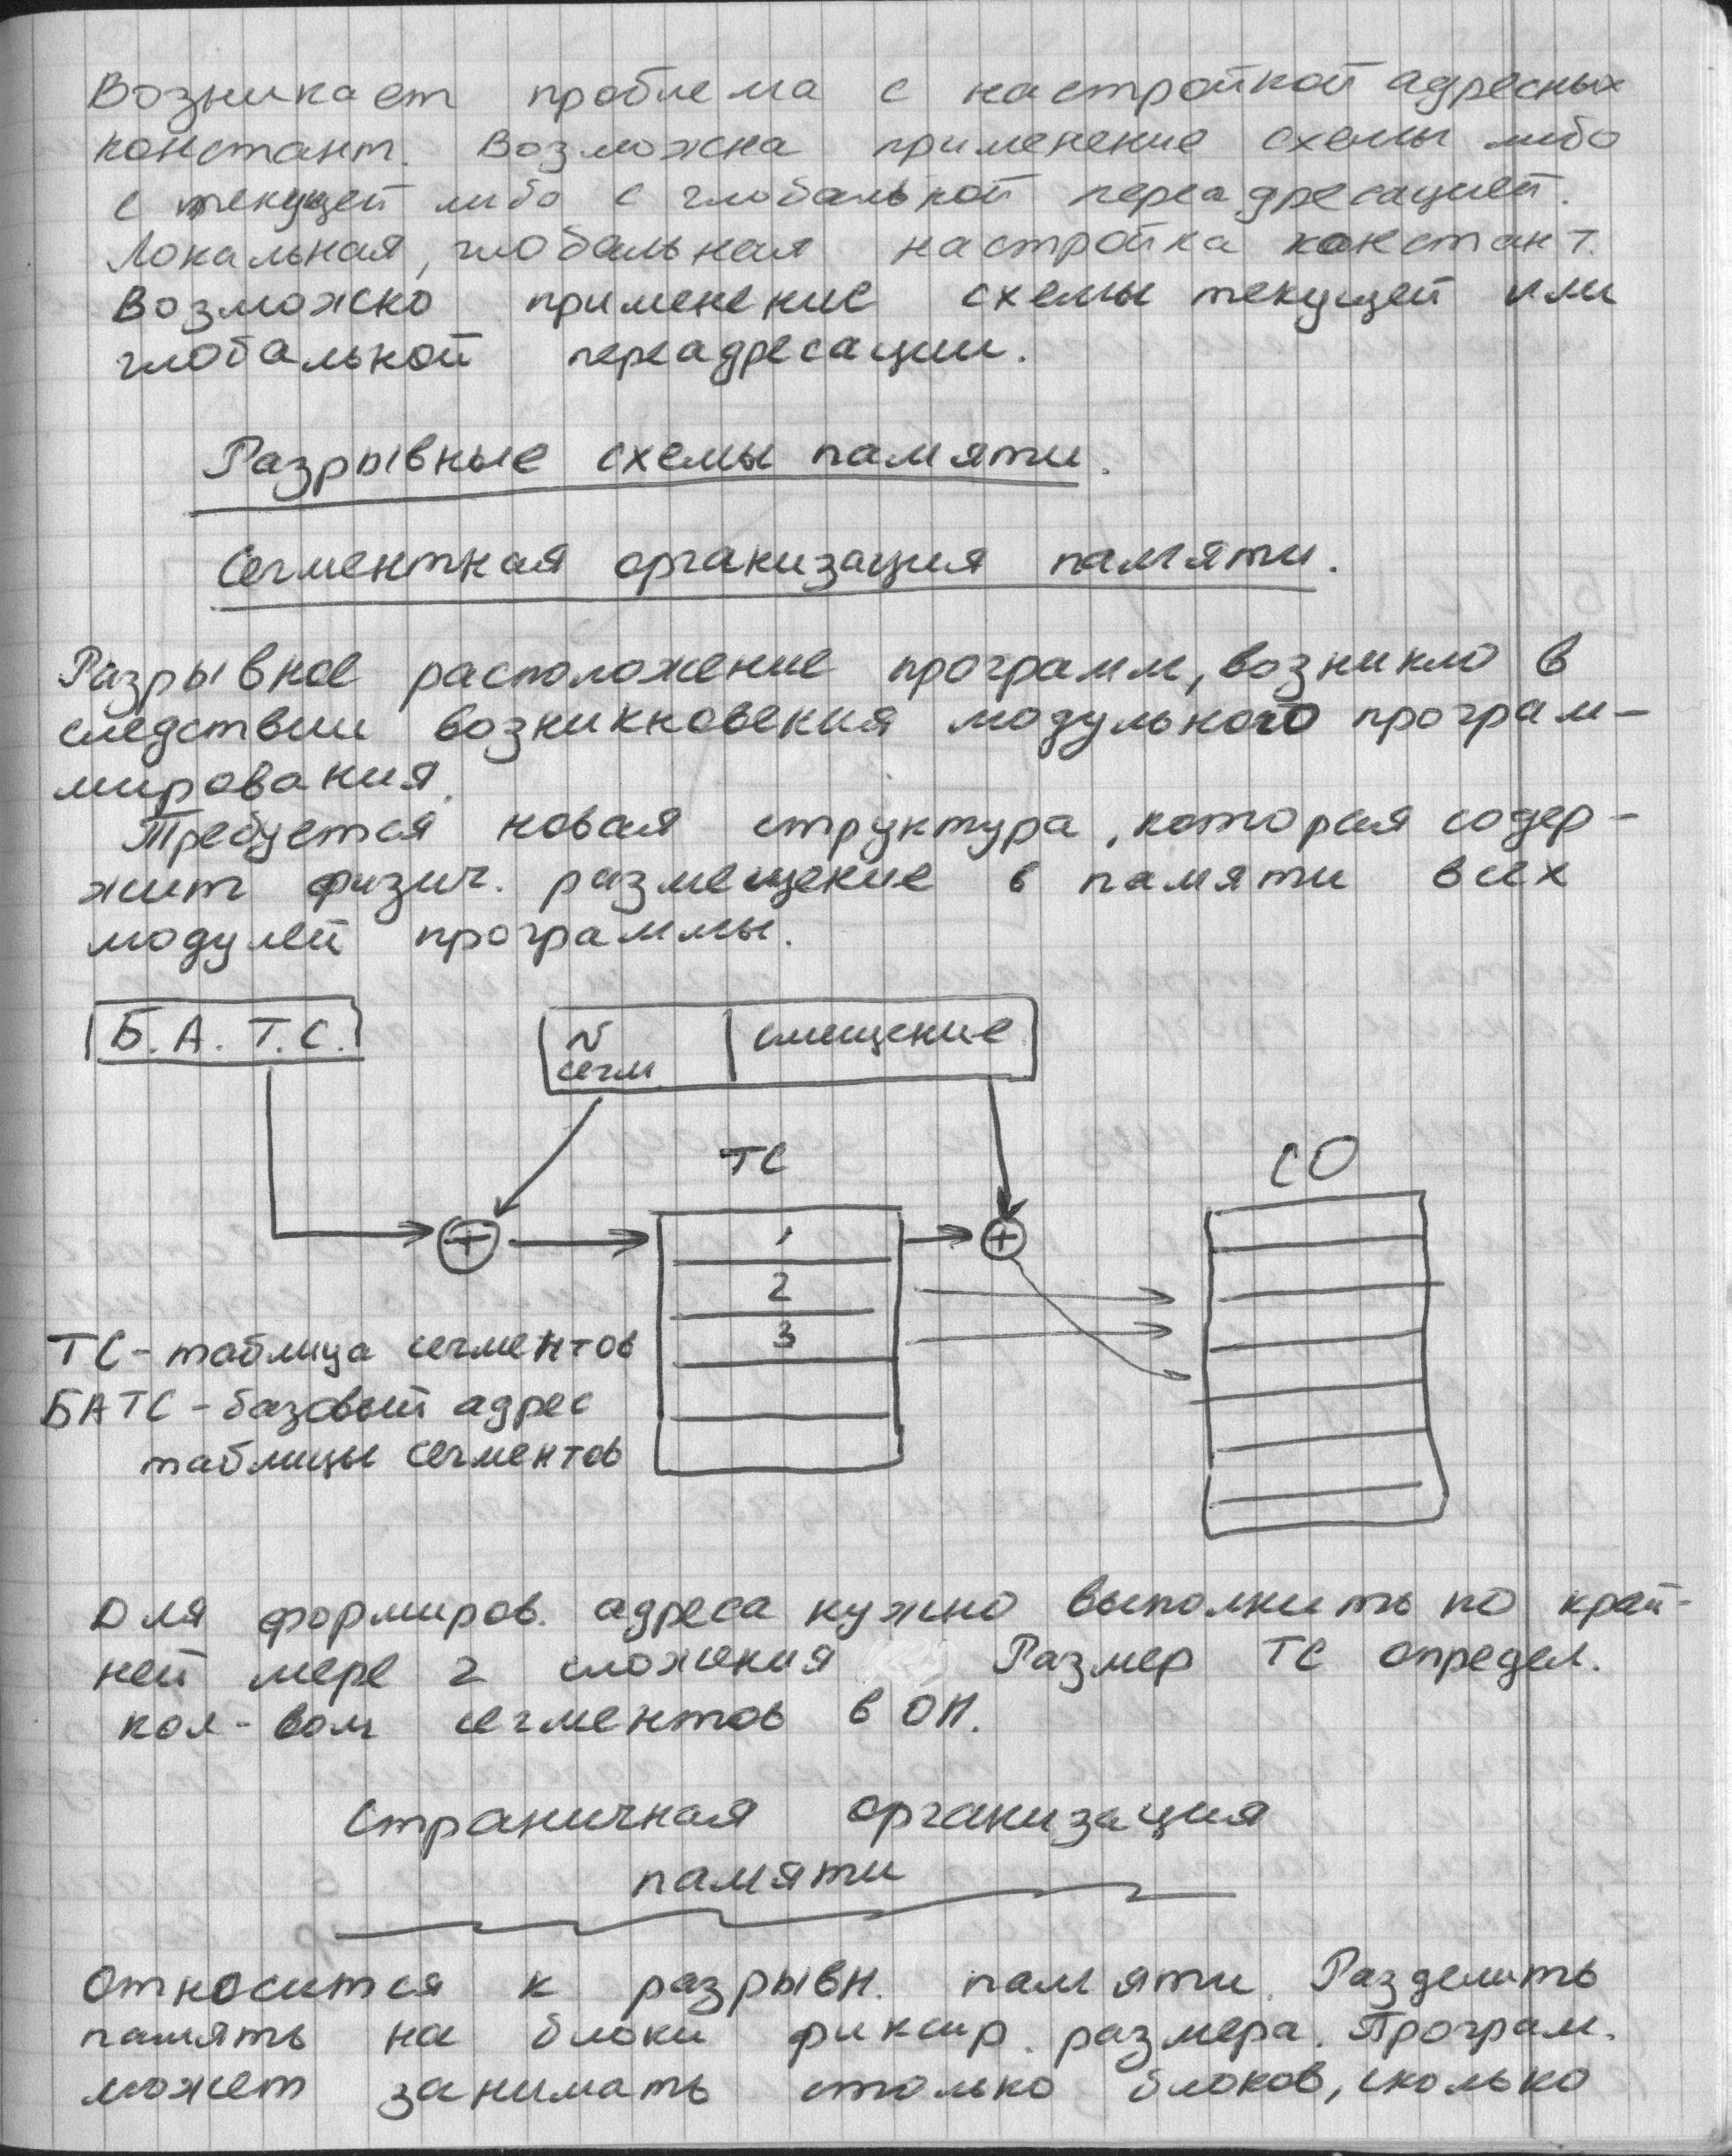 Возникает проблема с настройкой адресных
констант. Возможна применение схемы либо
с текущей либо с глобальной переадресацией.
Локальная, глобальная настройка констант.
Возможно применение схемы текущей или
глобальной переадресации.
Разрывные схемы памяти.
Сегментная организация памяти.
Разрывное расположение программ, возникло в
следствии возникновения модульного програм-
мирования.
Требуется новая структура, которая содер-
жит физич. размещение в памяти всех
модулей программы.
Б.А.Т.С.
N смещение
сегм.
ТС
СО
1
2
3
ТС - таблица сегментов
БАТС - базовый адрес
таблицы сегментов
Для формиров. адреса нужно выполнить по край-
ней мере 2 сложения Размер ТС определ.
кол-вом сегментов в ОП.
Страничная организация
памяти
Относится к разрывн. памяти. Разделить
память на блоки фиксир. размера. Програм.
может занимать столько блоков, сколько